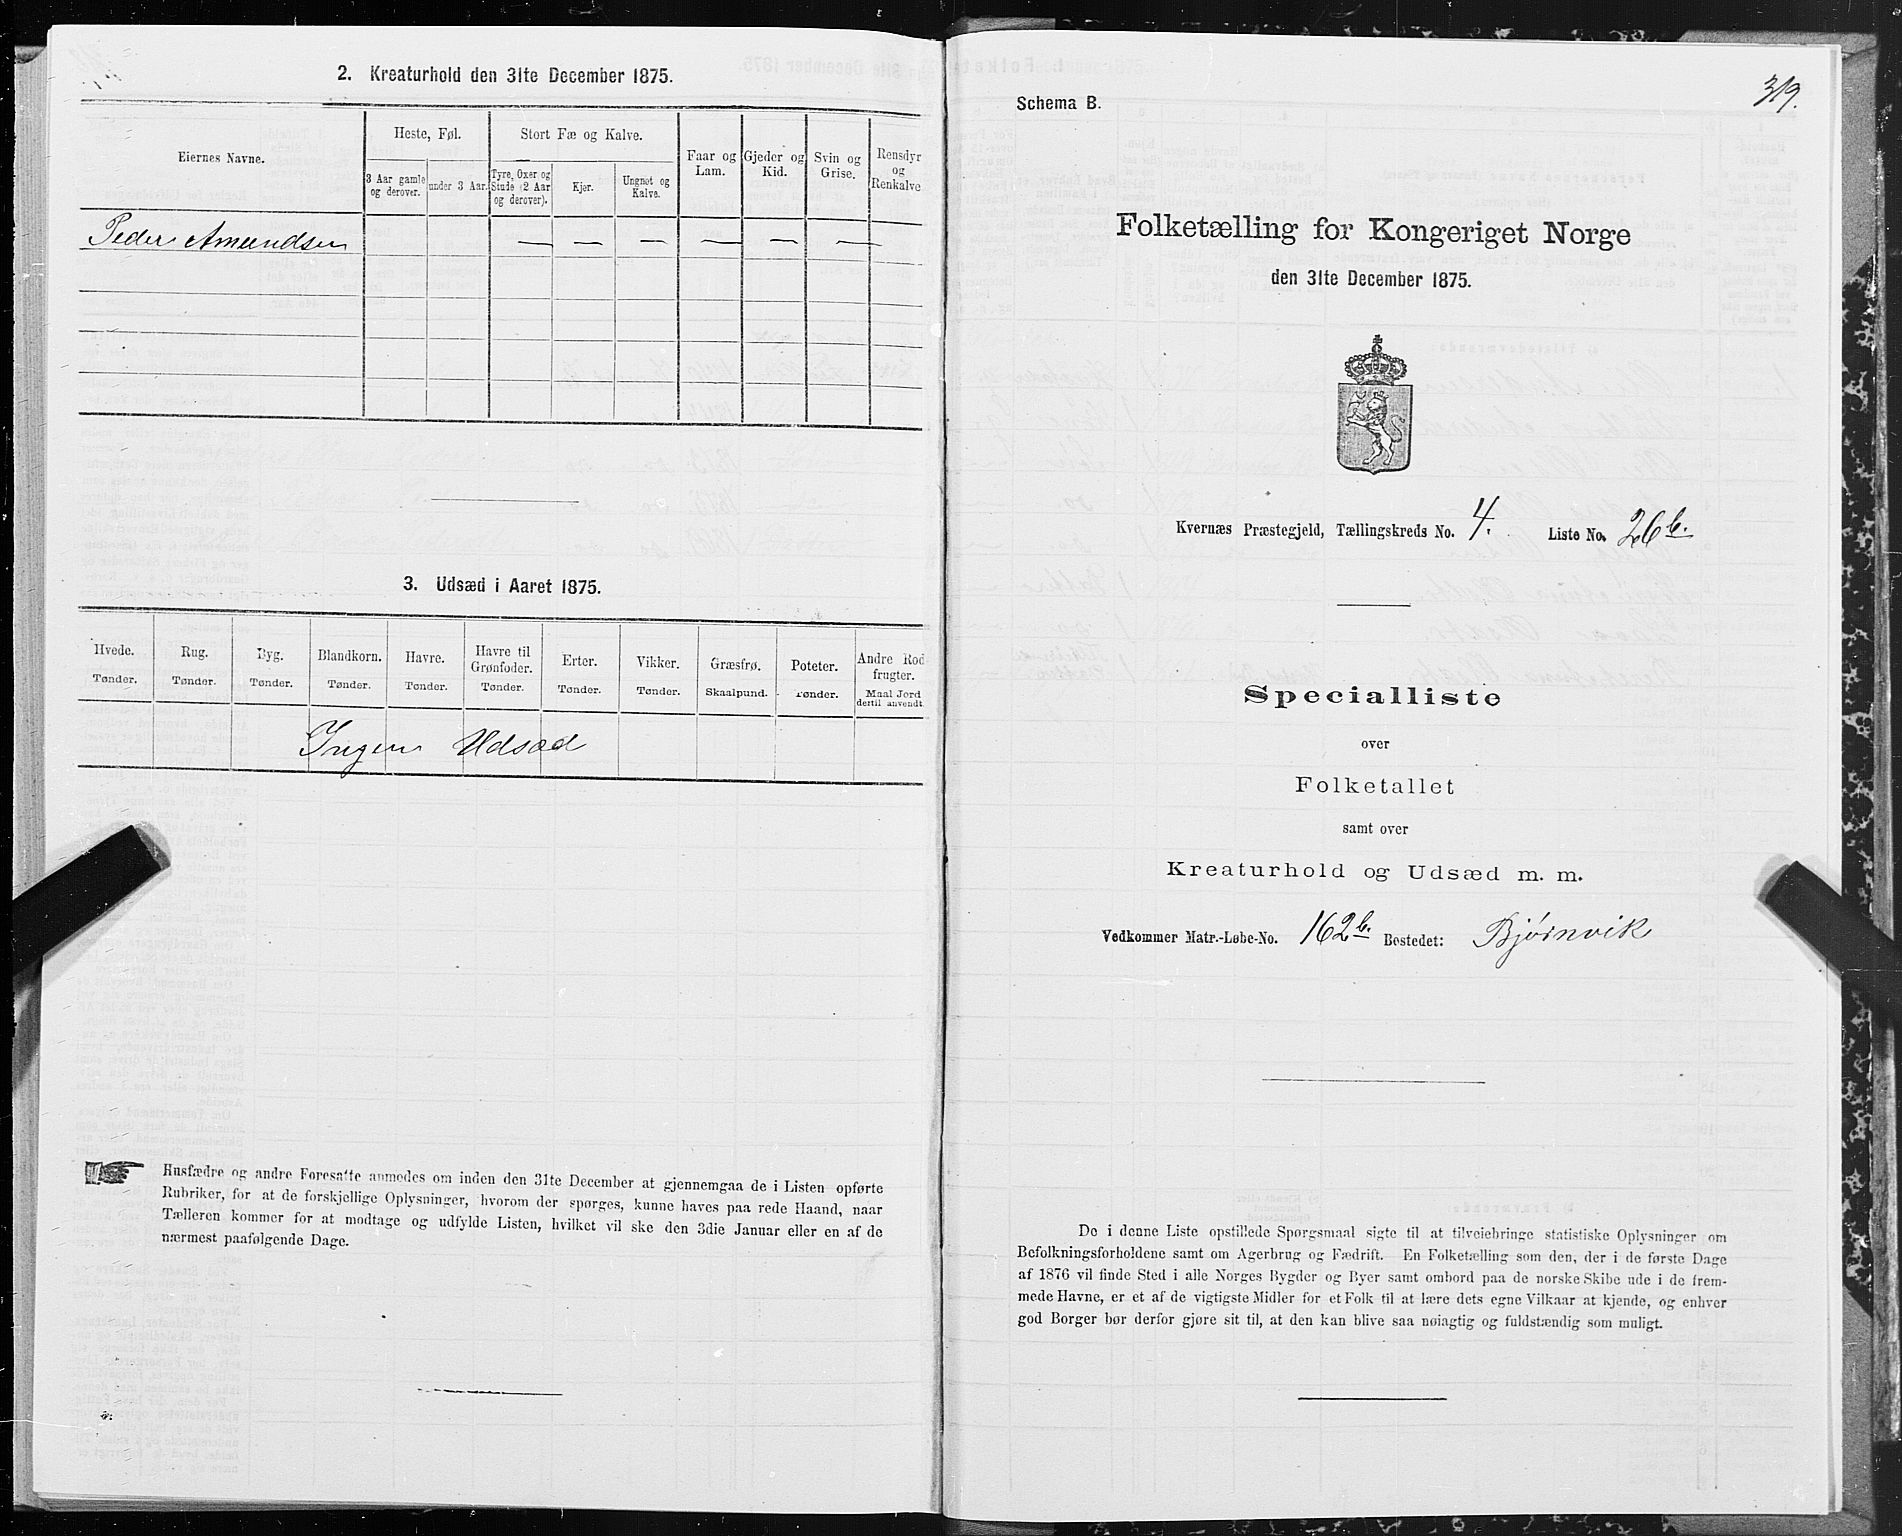 2. Kreaturhold den 31te December 1875.
Eiernes Navne.
Heste, Føl.
Stort Fæ og Kalve.
Faar og Lam.
Gjeder og Kid.
Svin og Grise.
Rensdyr og Renkalve
3 Aar gamle og derover.
under 3 Aar.
Tyre, Oxer og Stude (2 Aar og derover).
Kjør.
Ungnøt og Kalve.
Peder Amundsen — — — — — —
3. Udsæd i Aaret 1875.
Hvede. Tønder.
Rug. Tønder.
Byg. Tønder.
Blandkorn. Tønder.
Havre. Tønder.
Havre til Grønfoder. Tønder.
Erter. Tønder.
Vikker. Tønder.
Græsfrø. Skaalpund.
Poteter. Tønder.
Andre Rodfrugter. Maal Jord dertil anvendt.
Ingen Udsæd
Husfædre og andre Foresatte anmodes om inden den 31te December at gjennemgaa de i Listen opførte
Rubriker, for at de forskjellige Oplysninger, hvorom der spørges, kunne haves paa rede Haand, naar
Tælleren kommer for at modtage og udfylde Listen, hvilket vil ske den 3die Januar eller en af de
nærmest paafølgende Dage.
319.
Schema B.
Folketælling for Kongeriget Norge
den 31te December 1875.
Kvernæs Præstegjeld, Tællingskreds No. 4. Liste No. 26b.
Specialliste
over
Folketallet
samt over
Kreaturhold og Udsæd m. m.
Vedkommer Matr.-Løbe-No. 162b. Bostedet: Bjørnvik
De i denne Liste opstillede Spørgsmaal sigte til at tilveiebringe statistiske Oplysninger om
Befolkningsforholdene samt om Agerbrug og Fædrift. En Folketælling som den, der i de første Dage
af 1876 vil finde Sted i alle Norges Bygder og Byer samt ombord paa de norske Skibe ude i de frem-
mede Havne, er et af de vigtigste Midler for et Folk til at lære dets egne Vilkaar at kjende, og enhver
god Borger bør derfor gjøre sit til, at den kan blive saa nøiagtig og fuldstændig som muligt.